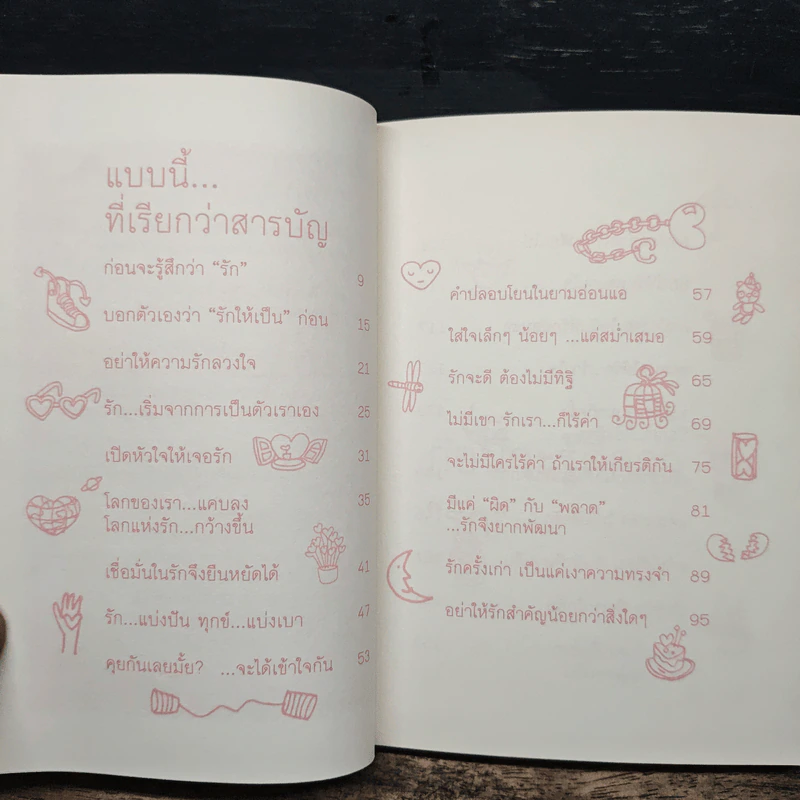 แบบนี้...
ที่เรียกว่าสารบัญ
ก่อนจะรู้สึกว่า “รัก” 9
บอกตัวเองว่า “รักให้เป็น” ก่อน 15
อย่าให้ความรักลวงใจ 21
รัก...เริ่มจากการเป็นตัวเราเอง 25
เปิดหัวใจให้เจอรัก 31
โลกของเรา...แคบลง 35
โลกแห่งรัก...กว้างขึ้น
เชื่อมั่นในรักจึงยืนหยัดได้ 41
รัก...แบ่งปัน ทุกข์...แบ่งเบา 47
คุยกันเลยมั้ย? ...จะได้เข้าใจกัน 53
คำปลอบโยนในยามอ่อนแอ 57
ใส่ใจเล็กๆ น้อยๆ ...แต่สม่ำเสมอ 59
รักจะดี ต้องไม่มีทิฐิ 65
ไม่มีเขา รักเรา...ก็ไร้ค่า 69
จะไม่มีใครไร้ค่า ถ้าเราให้เกียรติกัน 75
มีแค่ “ผิด” กับ “พลาด” 81
...รักจึงยากพัฒนา
รักครั้งเก่า เป็นแค่เงาความทรงจำ 89
อย่าให้รักสำคัญน้อยกว่าสิ่งใดๆ 95